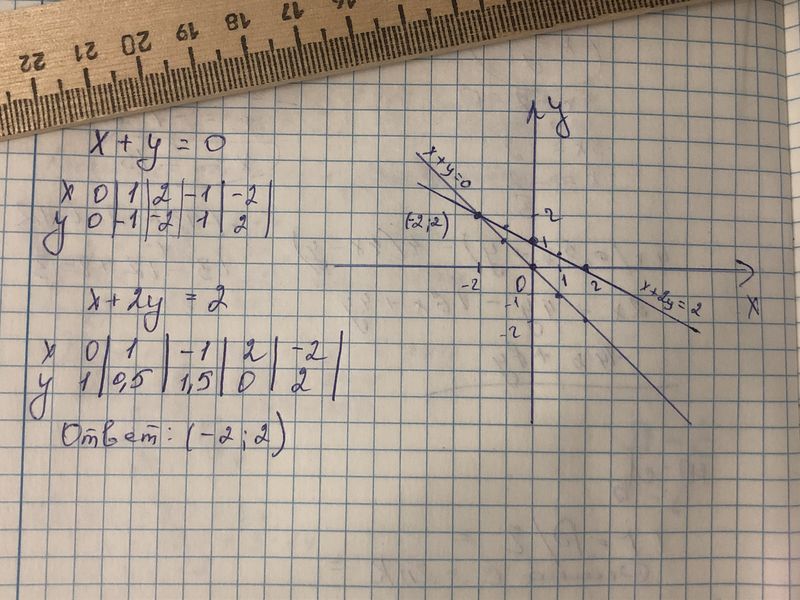 22 21 20 19 18 17 16
x + y = 0
x 0 | 1 | 2 | -1 | -2 |
y 0 | -1 | -2 | 1 | 2 |
x + 2y = 2
x 0 | 1 | -1 | 2 | -2 |
y 1 | 0,5 | 1,5 | 0 | 2 |
Ответ: (-2; 2)
y
x+y=0
(-2; 2)
2
1
-2 0 1 2
-1
-2
x+2y=2
x